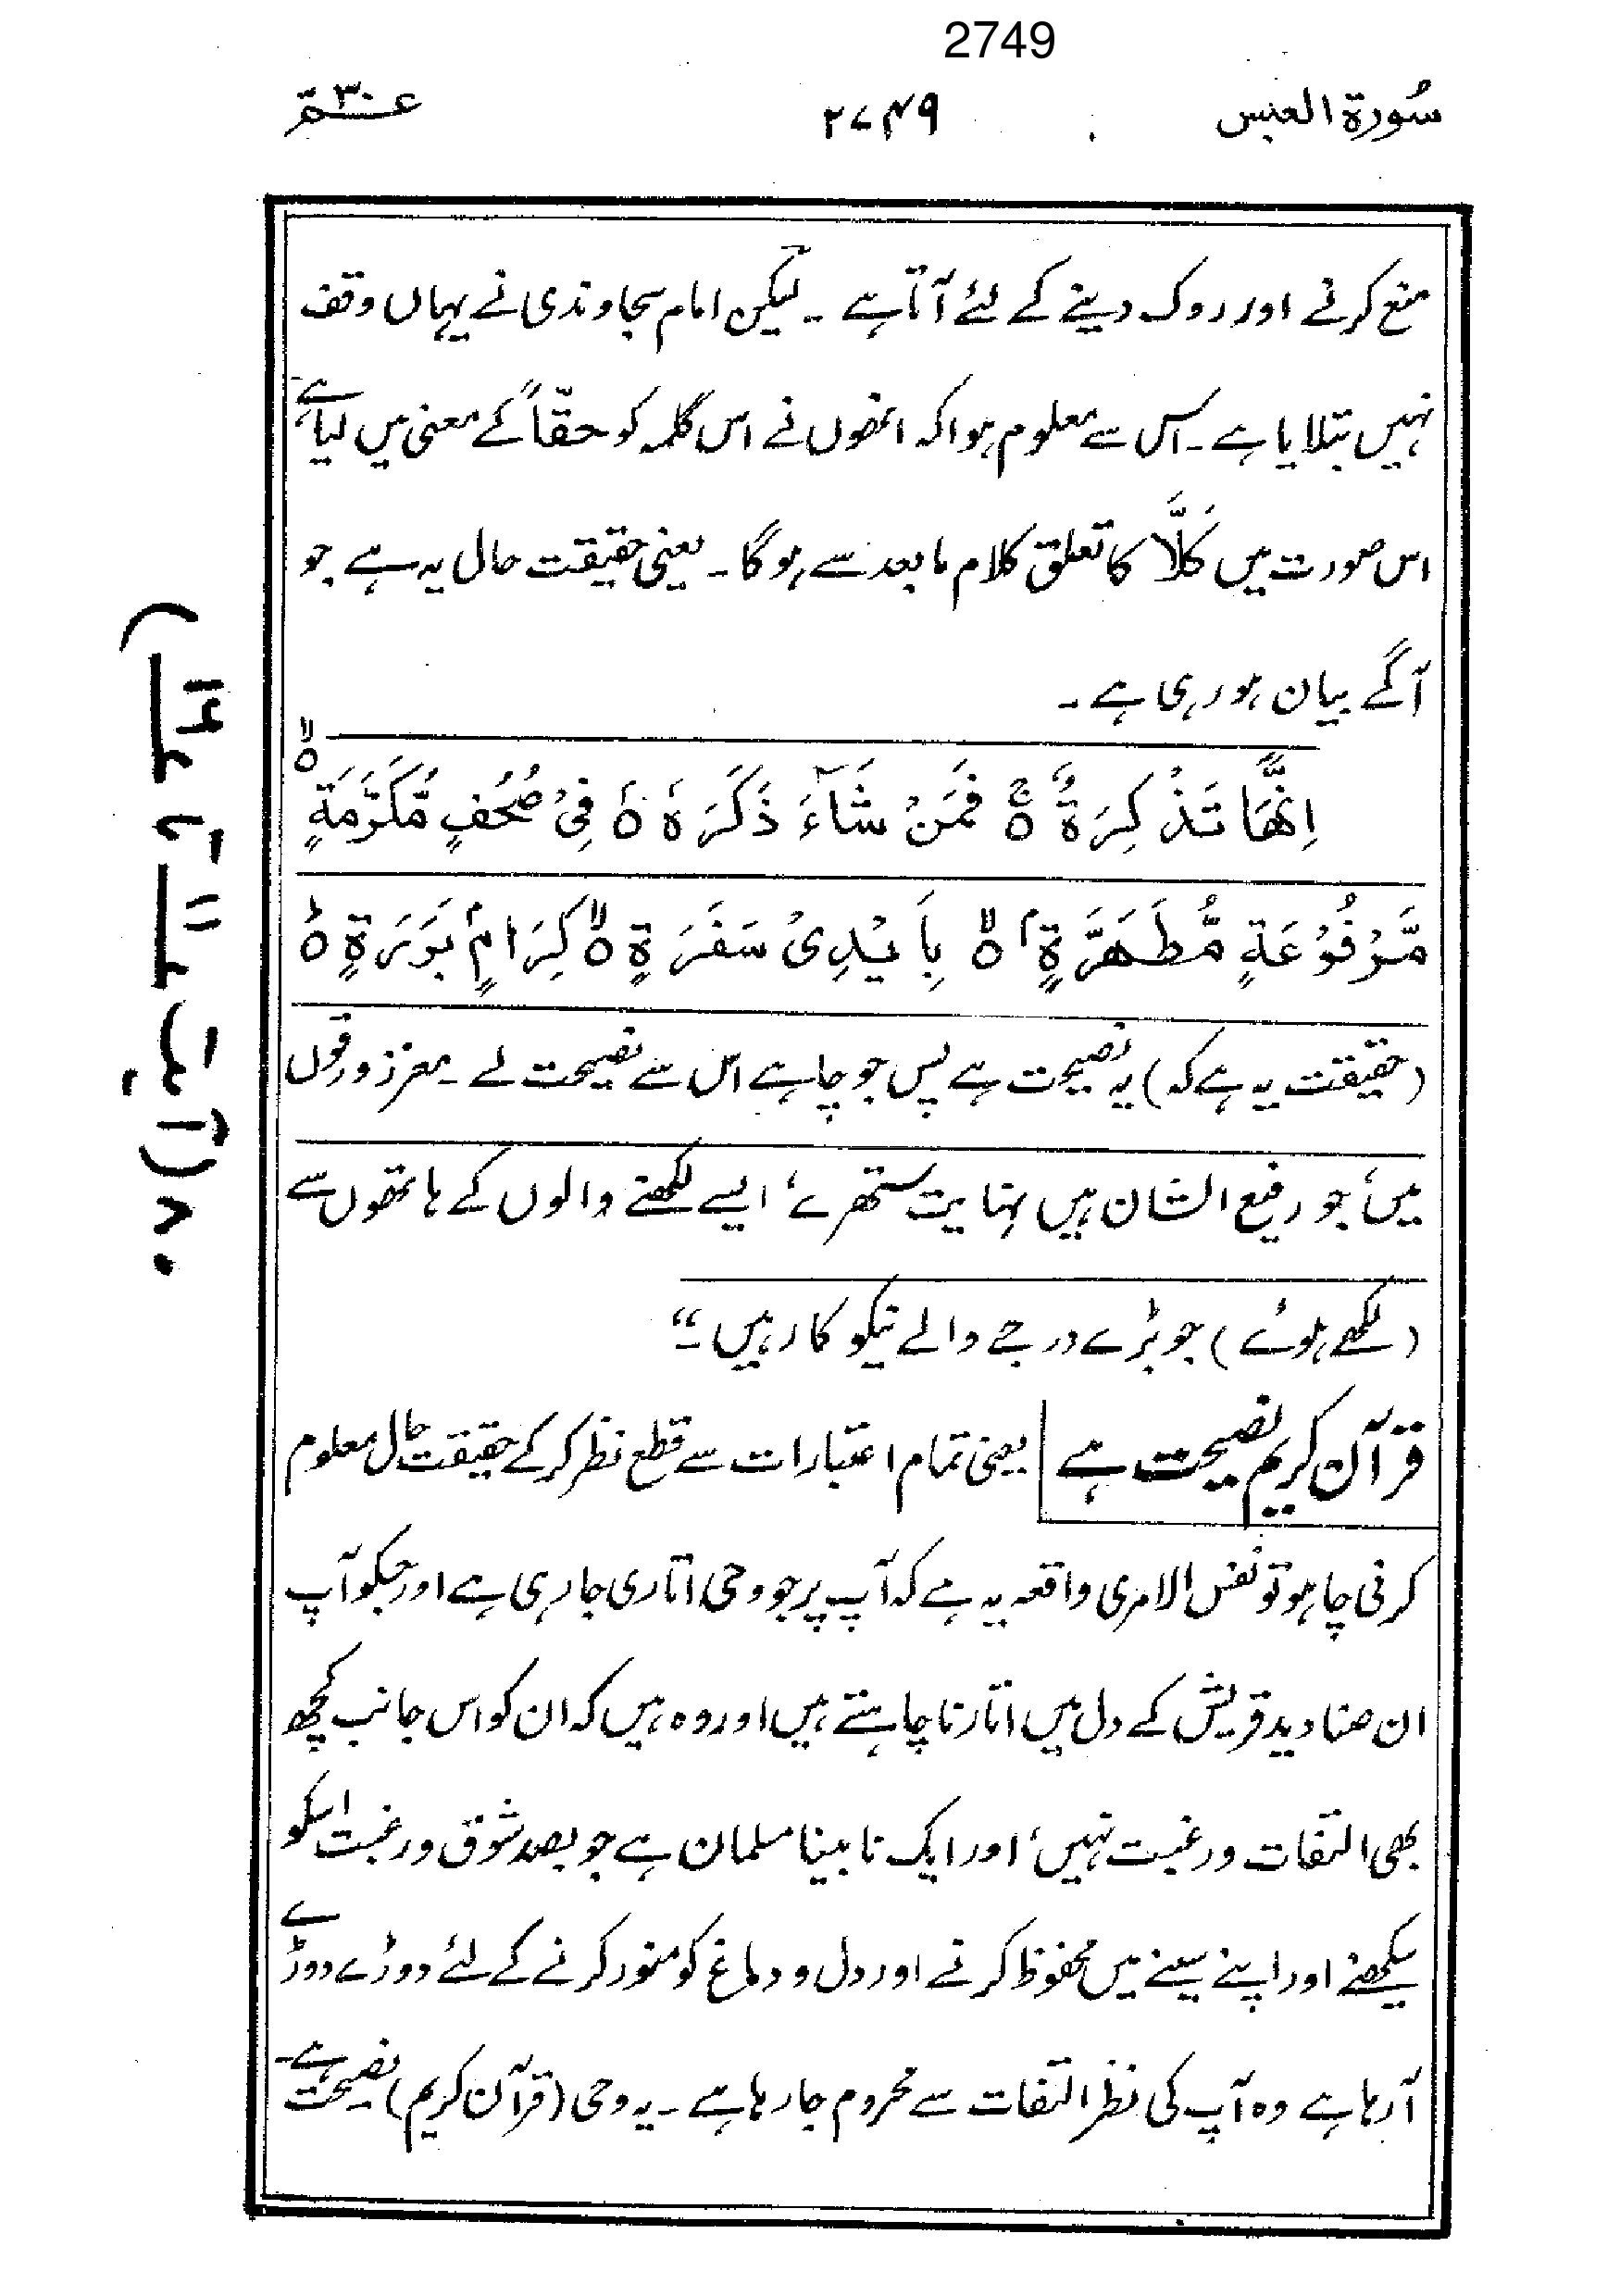 2749
سُورۃ العبس ۲۷۴۹ عــمّ ۳۰
منع کرنے اور روک دینے کے لئے آتا ہے ۔ لیکن امام سجاوندی نے یہاں وقف
نہیں بتلایا ہے ۔ اس سے معلوم ہوا کہ انھوں نے اس کلمہ کو حقّاً کے معنی میں لیا ہے،
اس صورت میں کَلَّا کا تعلق کلام مابعد سے ہوگا ۔ یعنی حقیقت حال یہ ہے جو
آگے بیان ہو رہی ہے ۔
اِنَّهَا تَذْكِرَةٌ ۚ۝ فَمَنْ شَآءَ ذَكَرَهٗ ۘ۝ فِیْ صُحُفٍ مُّكَرَّمَةٍ ۙ۝
مَّرْفُوْعَةٍ مُّطَهَّرَةٍۭ ۙ۝ بِاَیْدِیْ سَفَرَةٍ ۙ۝ كِرَامٍۭ بَرَرَةٍ ۝ؕ
(حقیقت یہ ہے کہ) یہ نصیحت ہے پس جو چاہے اس سے نصیحت لے ۔ معزز ورقوں
میں، جو رفیع الشان ہیں نہایت ستھرے، ایسے لکھنے والوں کے ہاتھوں سے
(لکھے ہوئے) جو بڑے درجے والے نیکو کار ہیں ۔“
قرآن کریم نصیحت ہے یعنی تمام اعتبارات سے قطع نظر کر کے حقیقت حال معلوم
کرنی چاہو تو نفس الامری واقعہ یہ ہے کہ آپ پر جو وحی اتاری جا رہی ہے اور جسکو آپ
ان صنادید قریش کے دل میں اتارنا چاہتے ہیں اور وہ ہیں کہ ان کو اس جانب کچھ
بھی التفات ورغبت نہیں، اور ایک نابینا مسلمان ہے جو بصد شوق ورغبت اسکو
سیکھنے اور اپنے سینے میں محفوظ کرنے اور دل و دماغ کو منور کرنے کے لئے دوڑے دوڑے
آرہا ہے وہ آپ کی نظر التفات سے محروم جا رہا ہے ۔ یہ وحی (قرآن کریم) نصیحت ہے ۔
۸۰ (آیت ۱۱ تا ۱۶)